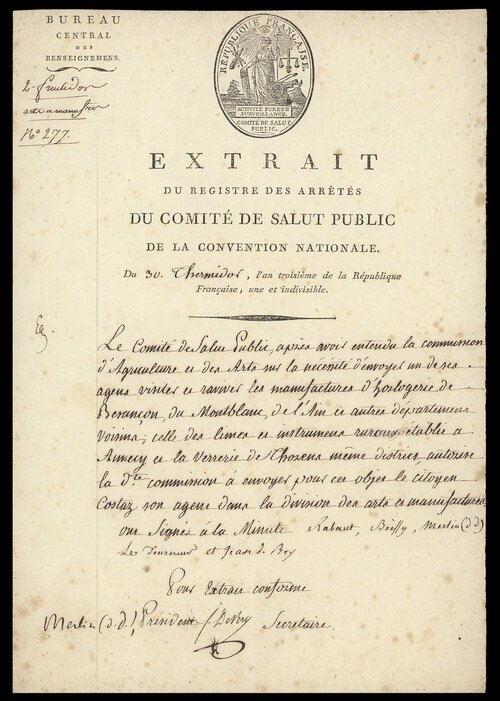 BUREAU
CENTRAL
DES
RENSEIGNEMENS.
2 fructidor
arts et manufres
No 277.
RÉPUBLIQUE FRANÇAISE.
ACTIVITÉ PURETÉ
SURVEILLANCE.
COMITÉ DE SALUT
PUBLIC.
EXTRAIT
DU REGISTRE DES ARRÊTÉS
DU COMITÉ DE SALUT PUBLIC
DE LA CONVENTION NATIONALE.
Du 30. Thermidor, l'an troisième de la République
Française, une et indivisible.
Le Comité de Salut Public, après avoir entendu la commission
d'Agriculture et des Arts sur la nécésité d'envoyer un de ses
agens visiter et raviver les manufactures d'horlogerie de
Besançon, du Montblanc, de l'Ain et autres départemens
Voisins, celle des limes et instrumens ruraux établie a
Annecy et la Verrerie de Thorens même district, autorise
la dte commission à envoyer pour cet objet le citoyen
Costaz son agent dans la division des arts et manufactures
ont Signés à la Minute Rabaut, Boissy, Merlin (d. d.)
Le Tourneur et jean de Bry
Pour Extrait conforme
Merlin (d. d.) Président J. Debry Secrétaire.